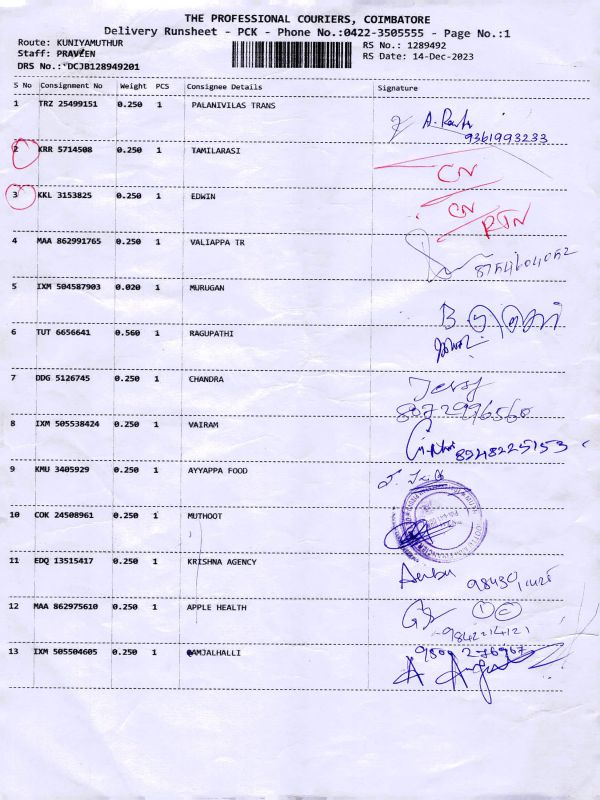 THE PROFESSIONAL COURIERS, COIMBATORE
Delivery Runsheet - PCK - Phone No.:0422-3505555 - Page No.:1
Route: KUNIYAMUTHUR
RS No.: 1289492
Staff: PRAVEEN
RS Date: 14-Dec-2023
DRS No.: DCJB128949201
S No Consignment No Weight PCS Consignee Details Signature
1 TRZ 25499151 0.250 1 PALANIVILAS TRANS
9361993233
2 KRR 5714508 0.250 1 TAMILARASI CN
3 KKL 3153825 0.250 1 EDWIN CN
RTN
4 MAA 862991765 0.250 1 VALIAPPA TR
8754604052
5 IXM 504587903 0.020 1 MURUGAN
6 TUT 6656641 0.560 1 RAGUPATHI
7 DDG 5126745 0.250 1 CHANDRA
8072996560
8 IXM 505538424 0.250 1 VAIRAM
8948225153
9 KMU 3405929 0.250 1 AYYAPPA FOOD
10 COK 24508961 0.250 1 MUTHOOT
11 EDQ 13515417 0.250 1 KRISHNA AGENCY
12 MAA 862975610 0.250 1 APPLE HEALTH
9842214121
13 IXM 505504605 0.250 1 AMJALHALLI